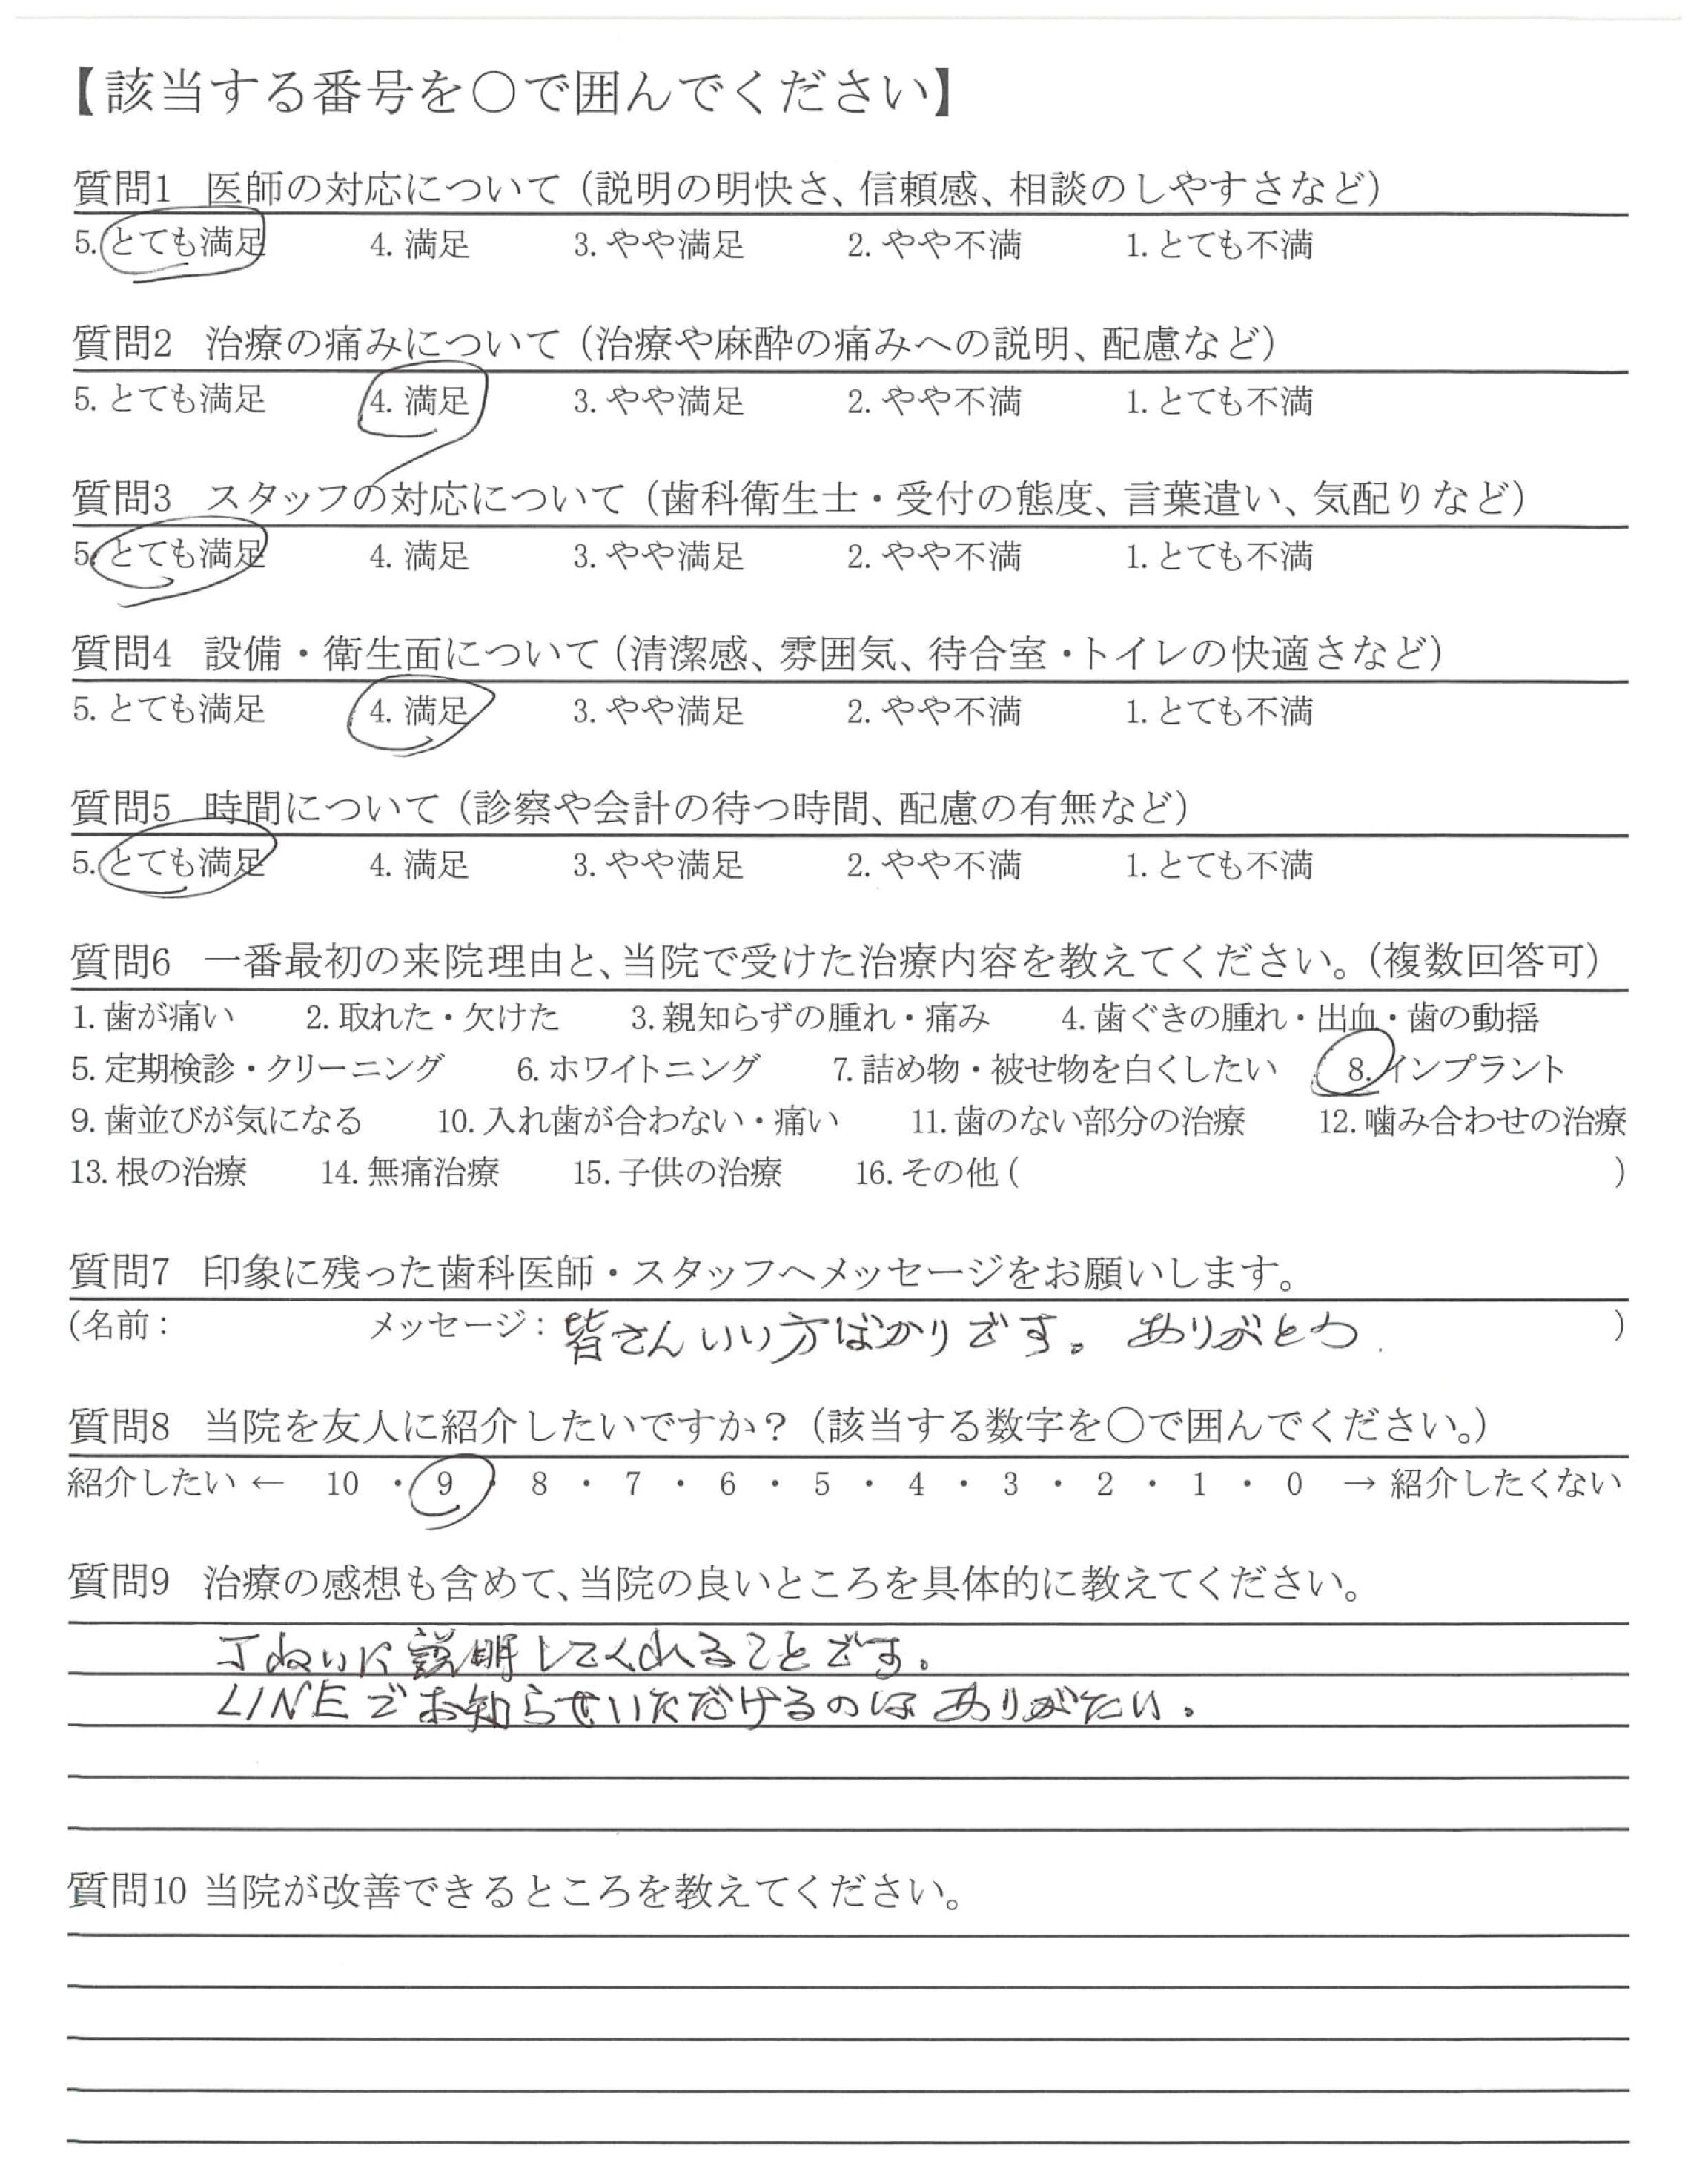 【該当する番号を〇で囲んでください】
質問1 医師の対応について（説明の明快さ、信頼感、相談のしやすさなど）
5. とても満足 4. 満足 3. やや満足 2. やや不満 1. とても不満
質問2 治療の痛みについて（治療や麻酔の痛みへの説明、配慮など）
5. とても満足 4. 満足 3. やや満足 2. やや不満 1. とても不満
質問3 スタッフの対応について（歯科衛生士・受付の態度、言葉遣い、気配りなど）
5. とても満足 4. 満足 3. やや満足 2. やや不満 1. とても不満
質問4 設備・衛生面について（清潔感、雰囲気、待合室・トイレの快適さなど）
5. とても満足 4. 満足 3. やや満足 2. やや不満 1. とても不満
質問5 時間について（診察や会計の待つ時間、配慮の有無など）
5. とても満足 4. 満足 3. やや満足 2. やや不満 1. とても不満
質問6 一番最初の来院理由と、当院で受けた治療内容を教えてください。（複数回答可）
1. 歯が痛い 2. 取れた・欠けた 3. 親知らずの腫れ・痛み 4. 歯ぐきの腫れ・出血・歯の動揺
5. 定期検診・クリーニング 6. ホワイトニング 7. 詰め物・被せ物を白くしたい 8. インプラント
9. 歯並びが気になる 10. 入れ歯が合わない・痛い 11. 歯のない部分の治療 12. 噛み合わせの治療
13. 根の治療 14. 無痛治療 15. 子供の治療 16. その他 ( )
質問7 印象に残った歯科医師・スタッフへメッセージをお願いします。
(名前： メッセージ：皆さんいい方ばかりです。ありがとう. )
質問8 当院を友人に紹介したいですか？（該当する数字を〇で囲んでください。）
紹介したい ← 10 ・ 9 ・ 8 ・ 7 ・ 6 ・ 5 ・ 4 ・ 3 ・ 2 ・ 1 ・ 0 → 紹介したくない
質問9 治療の感想も含めて、当院の良いところを具体的に教えてください。
丁ねいに説明してくれることです。
LINEでお知らせいただけるのはありがたい。
質問10 当院が改善できるところを教えてください。